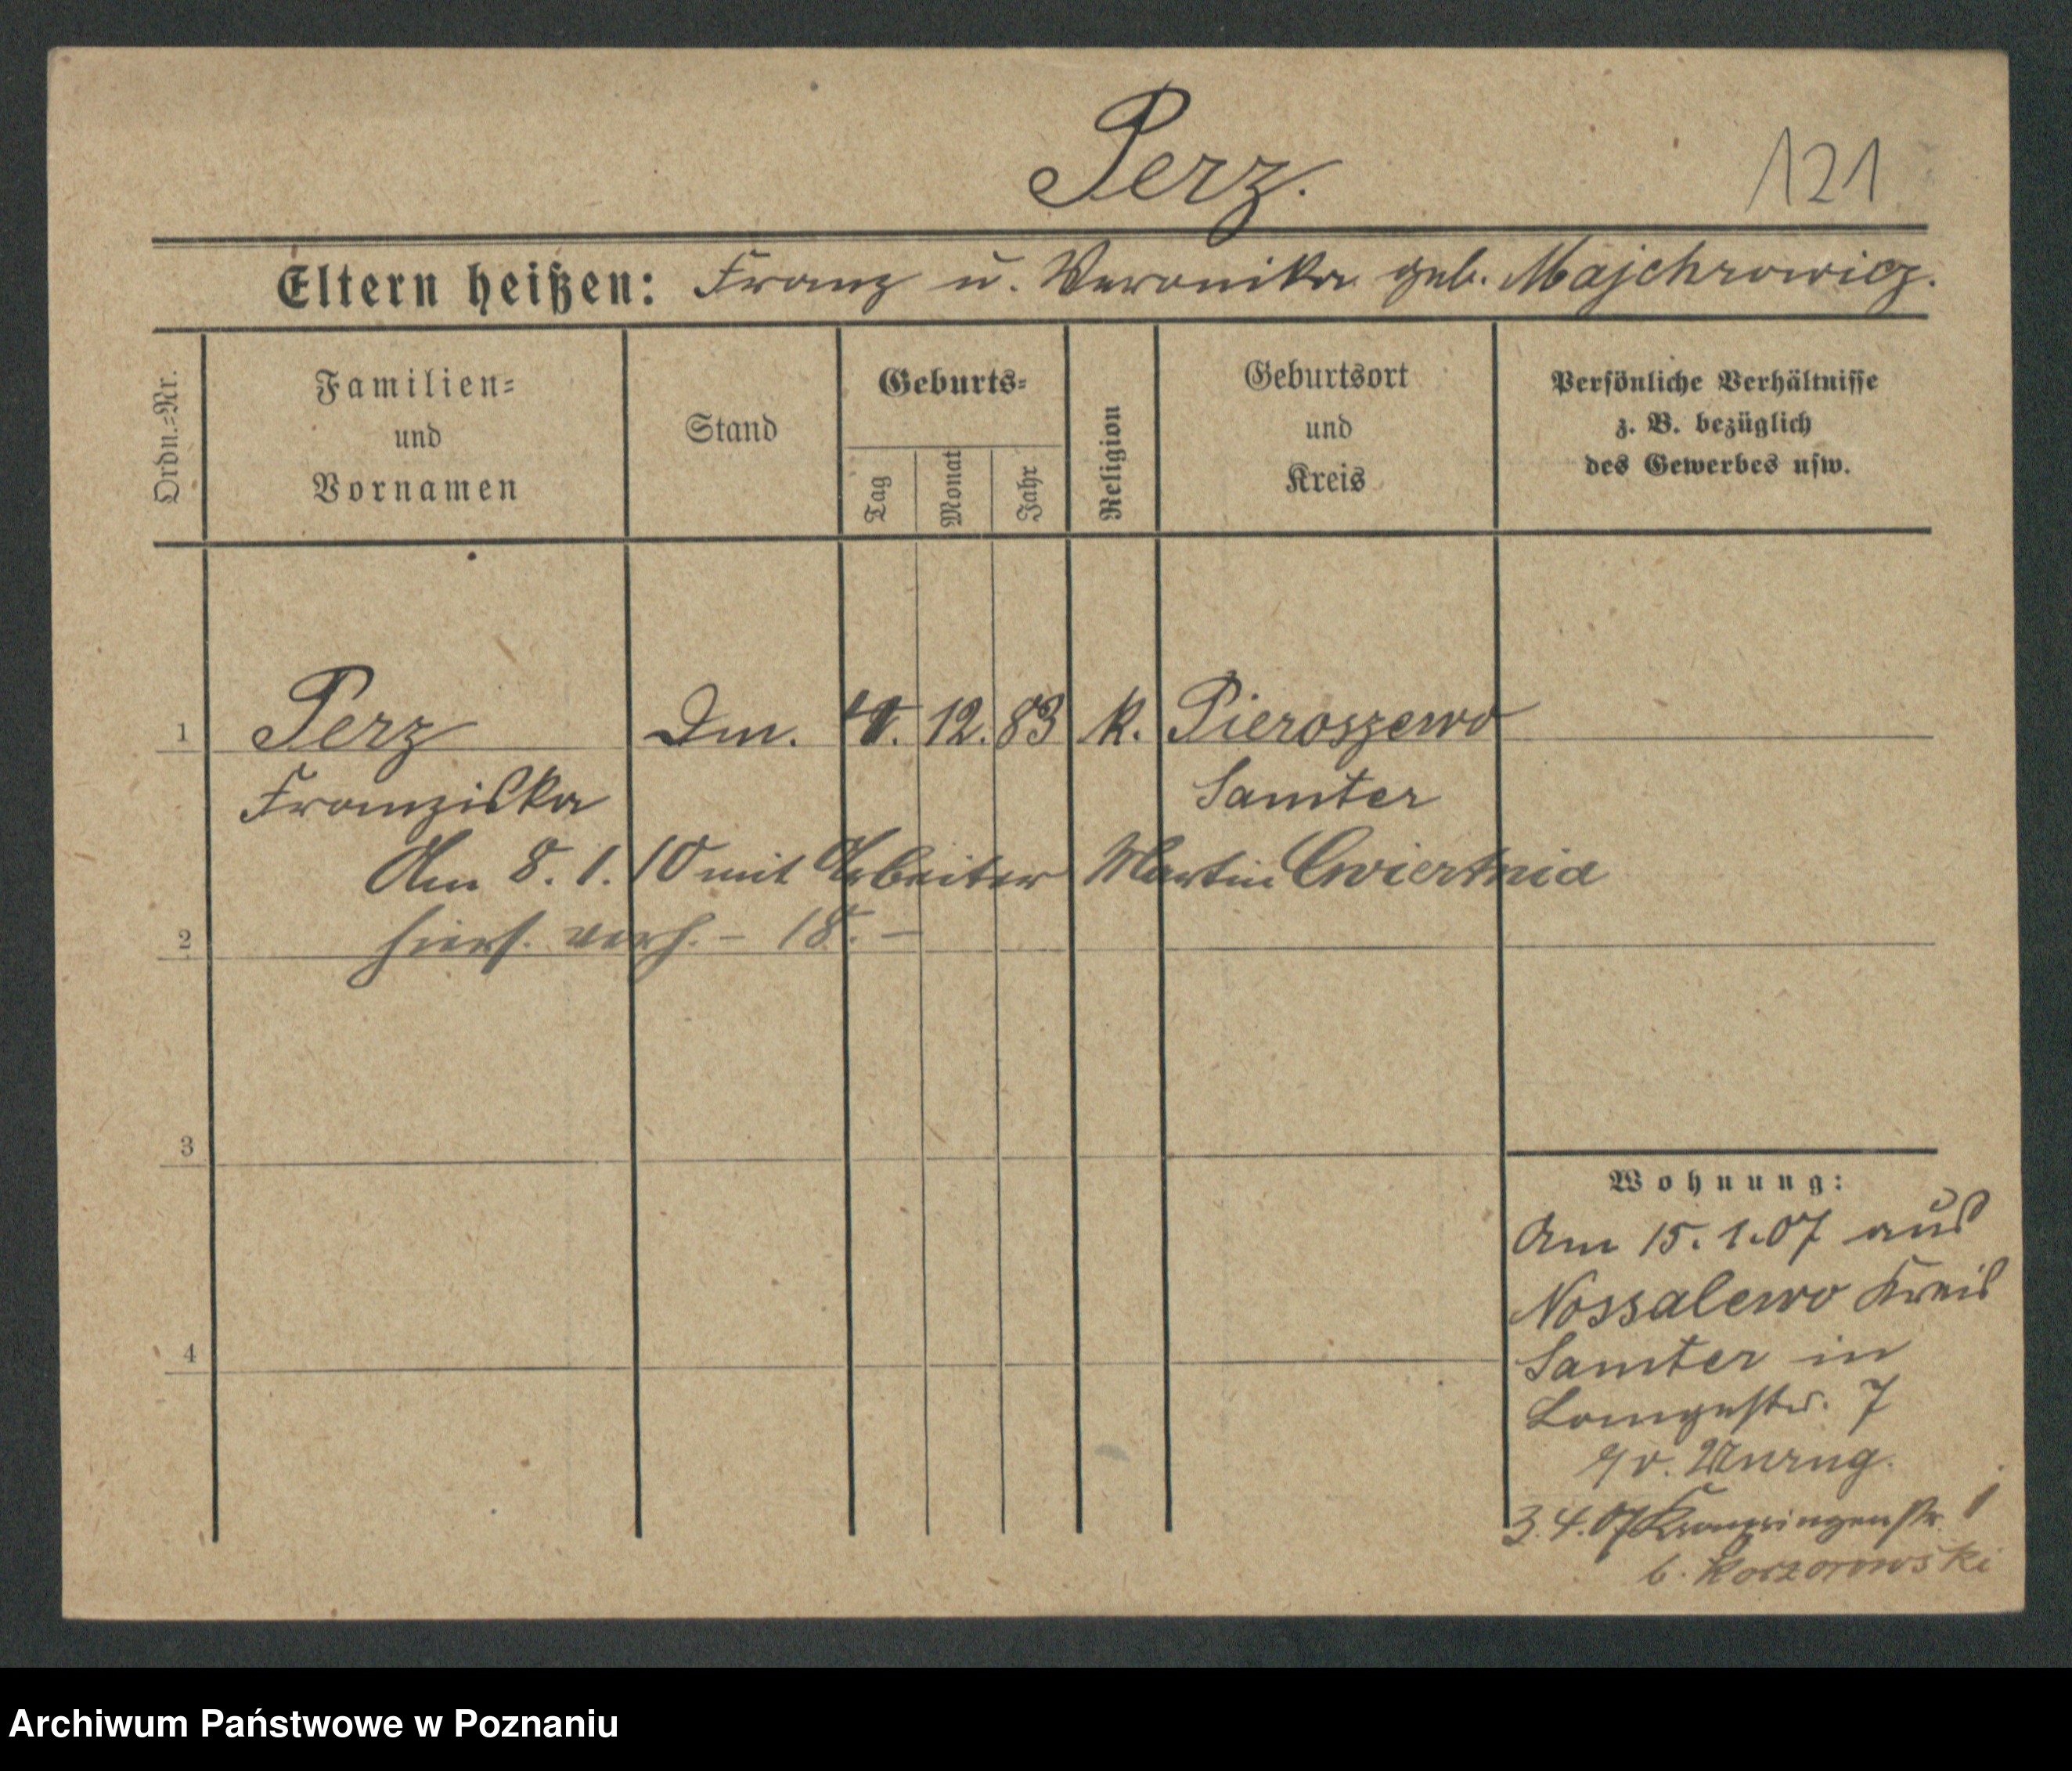 Perz.
121
Eltern heißen: Franz u. Veronika geb. Majchrowicz.
Ordn.=Nr.
Familien=
und
Vornamen
Stand
Geburts=
Tag
Monat
Jahr
Religion
Geburtsort
und
Kreis
Persönliche Verhältnisse
z. B. bezüglich
des Gewerbes usw.
1 Perz Dm. 12. 83 k. Pieroszewo
Franziska Samter
Am 8. 1. 10 mit Arbeiter Martin Cwiertnia
2 hiers. verh. - 18. -
3
4
Wohnung:
Am 15. 1. 07 aus
Nossalewo Kreis
Samter in
Langestr. 7
v. Unrug.
3. 4. 07 Kronprinzenstr. 1
b. Koszorowski
Archiwum Państwowe w Poznaniu